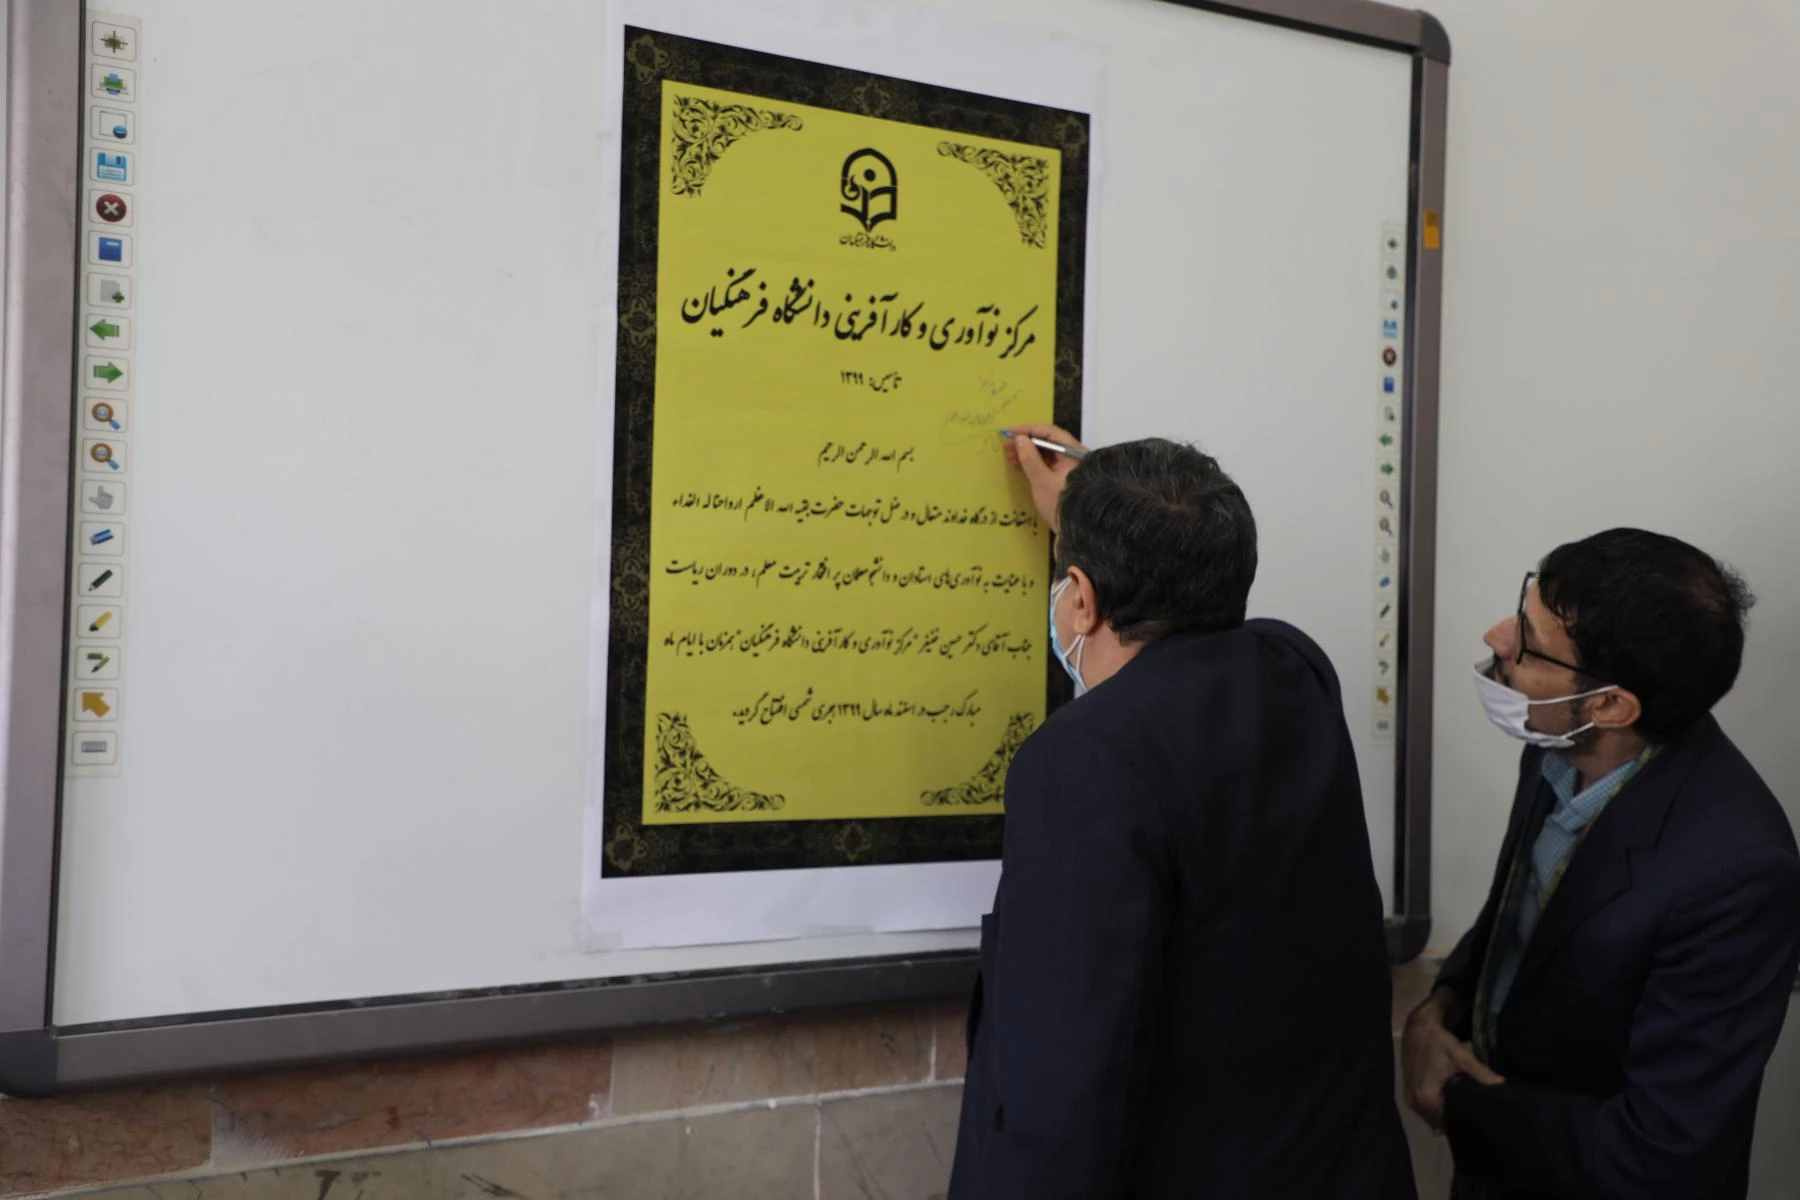 دانشگاه فرهنگیان
مرکز نوآوری و کارآفرینی دانشگاه فرهنگیان
تأسیس: ۱۳۹۹
بسم الله الرحمن الرحیم
با استعانت از درگاه خداوند متعال و در ظل توجهات حضرت بقیه الله الاعظم ارواحنا له الفداء
و با عنایت به نوآوری‌های استادان و دانشجومعلمان پر افتخار تربیت معلم، در دوران ریاست
جناب آقای دکتر حسین خنیفر "مرکز نوآوری و کارآفرینی دانشگاه فرهنگیان" همزمان با ایام ماه
مبارک رجب در اسفند ماه سال ۱۳۹۹ هجری شمسی افتتاح گردید.